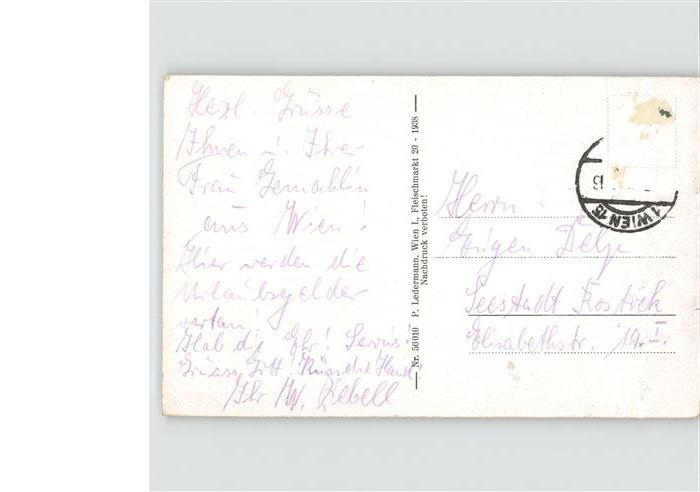 Herl. Grüsse
Ihnen u. Ihrer
Frau Gemahlin
aus Wien!
Hier werden die
Urlaubsgelder
vertan!
Hab die Ehr! Servus!
Grüass Gott! Küss die Hand
Ihr W.
Nr. 50010 P. Ledermann, Wien I., Fleischmarkt 20 - 1938
Nachdruck verboten!
1 WIEN 15
9
Herrn
Eugen
Seestadt Rostock
Elisabethstr. 19. I.